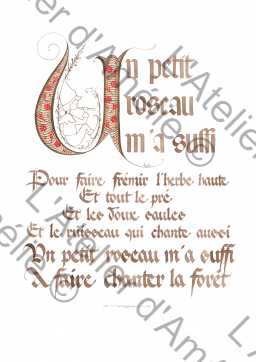 Un petit
roseau
m'a suffi
Pour faire frémir l'herbe haute
Et tout le pré
Et les doux saules
Et le ruisseau qui chante aussi
Un petit roseau m'a suffi
A faire chanter la forêt
L'Atelier d'Amélie ©